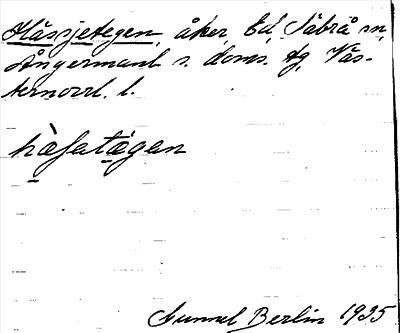 Hässjetegen, åker, Ed, Säbrå sn,
Ångermanl. s. doms. tg, Väs-
ternorrl. l.
hàʃatä̀gan
Gunnel Berlin 1935